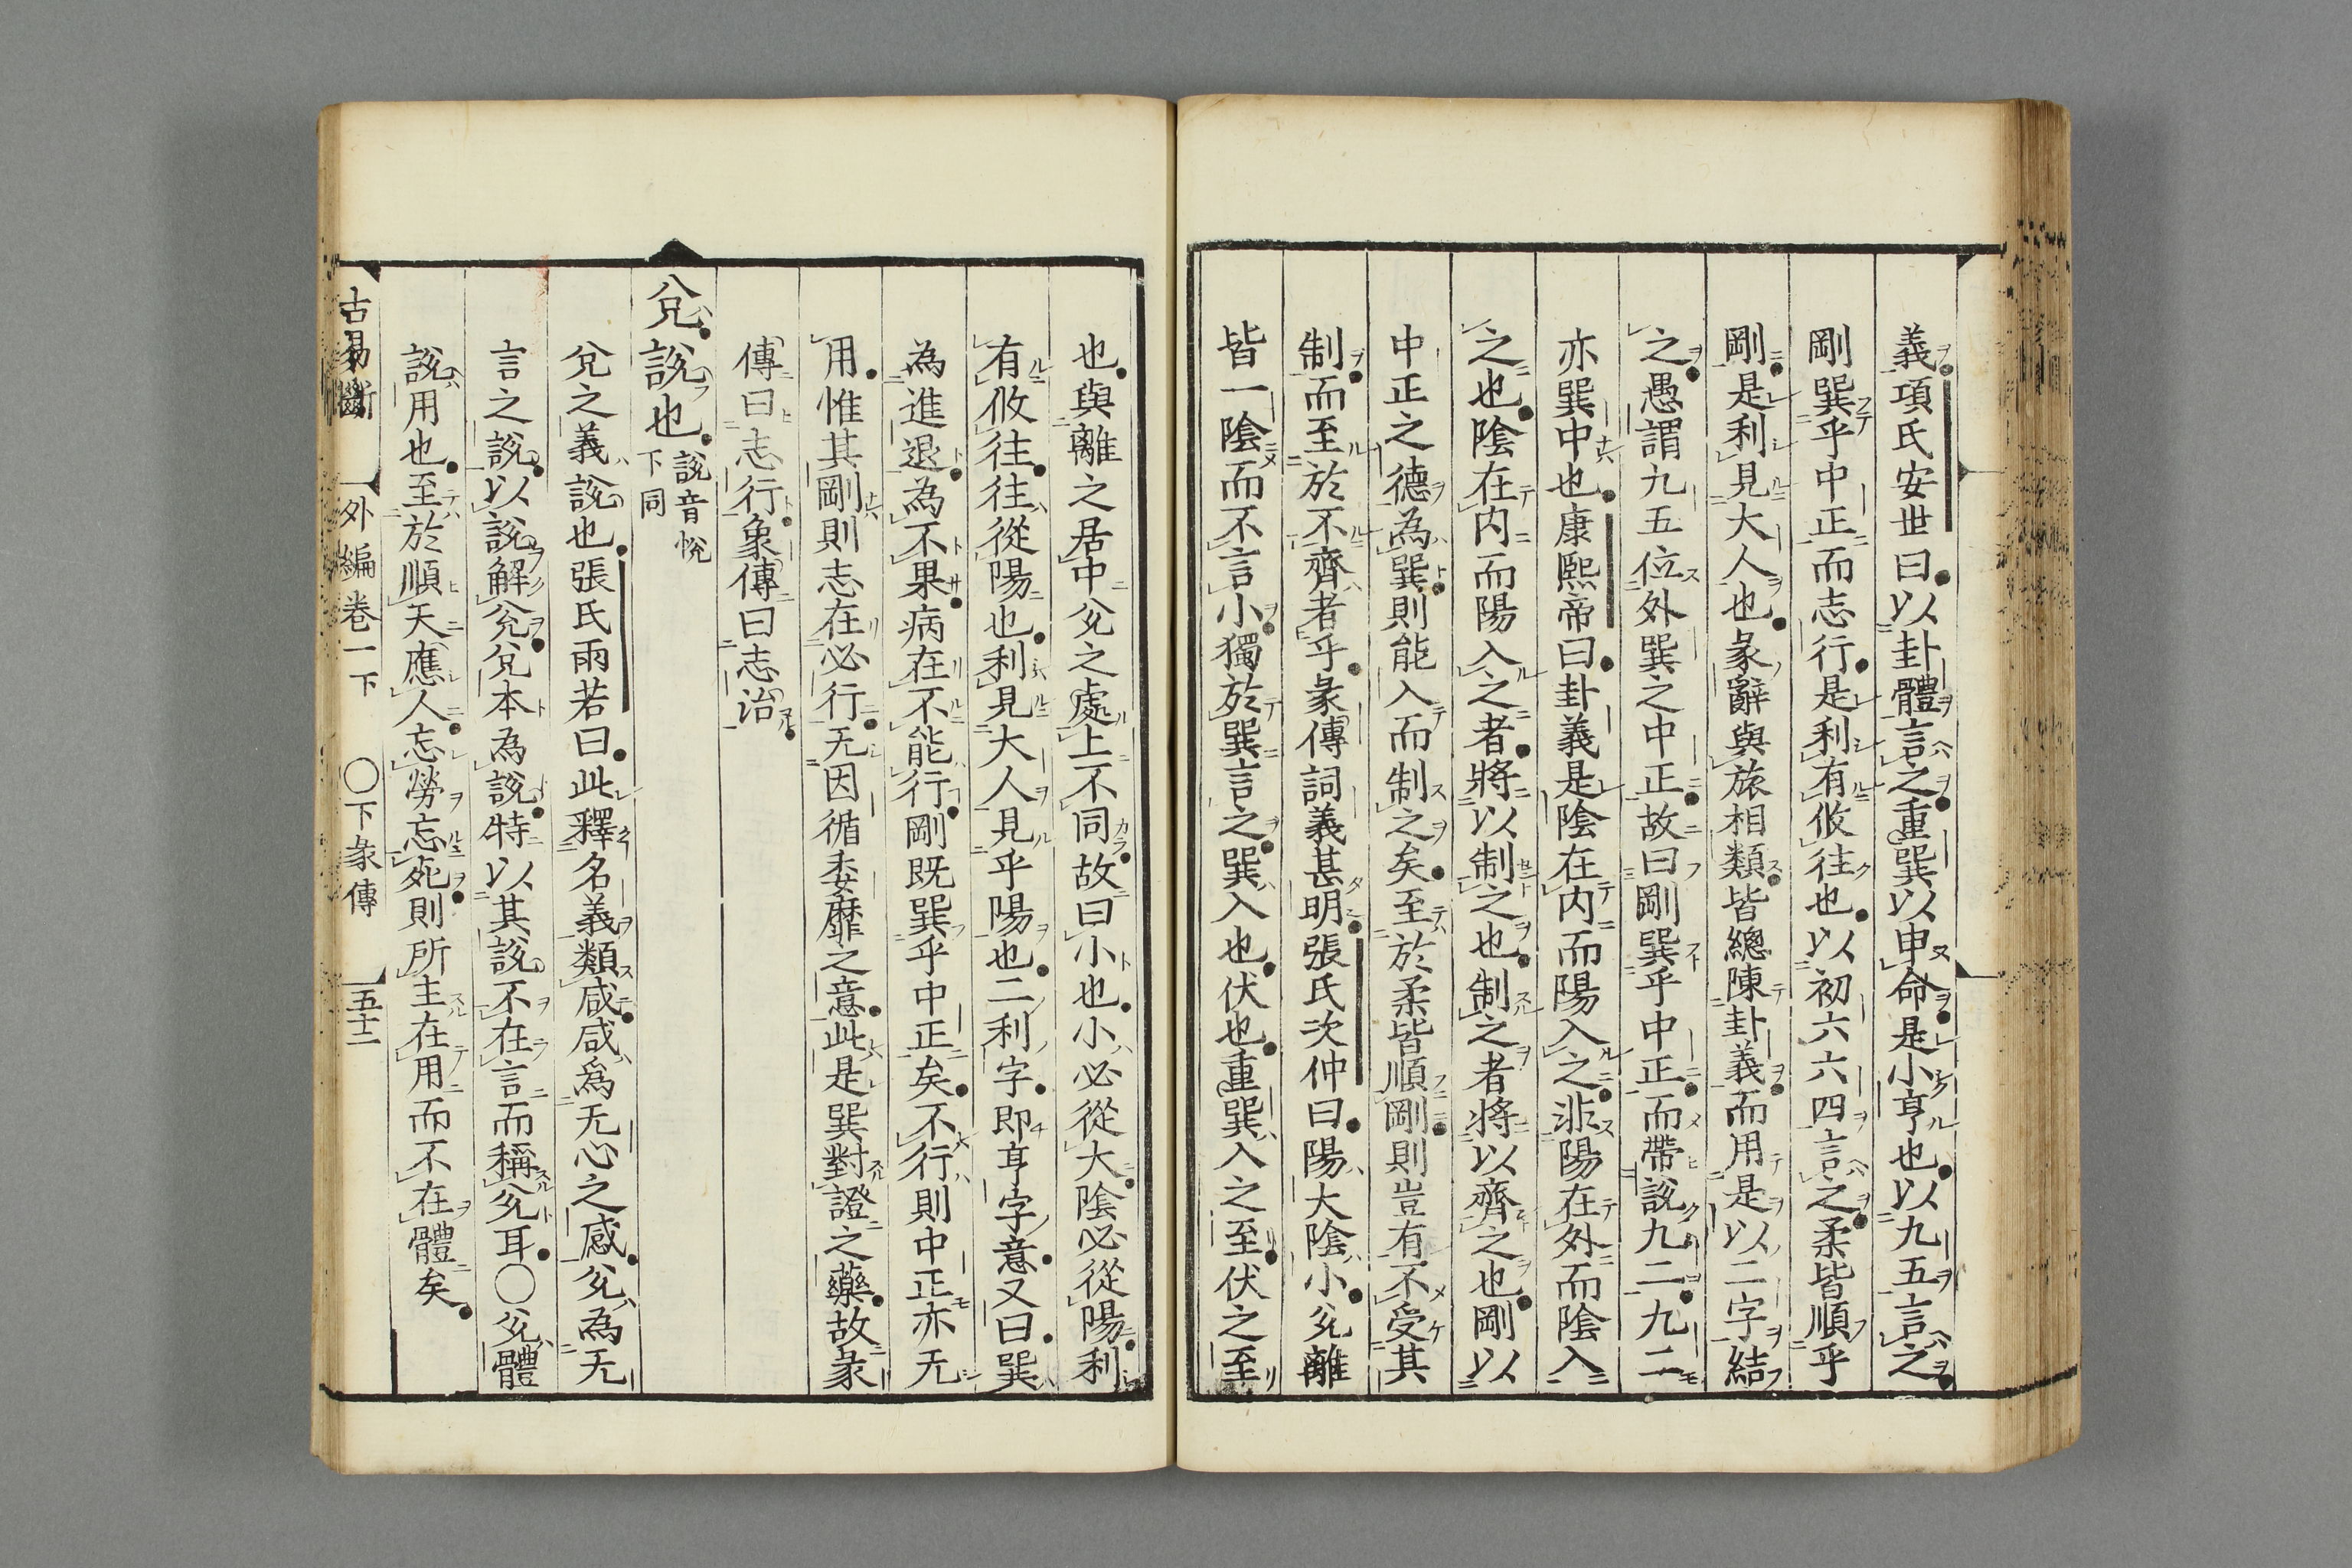 義項氏安世曰以卦體言之重巽以申命是小亨也以九五言之
剛巽乎中正而志行是利有攸往也以初六六四言之柔皆順乎
剛是利見大人也彖辭與旅相類皆總陳卦義而用是以二字結
之愚謂九五位外巽之中正故曰剛巽乎中正而帶說九二九二
亦巽中也康熙帝曰卦義是陰在內而陽入之非陽在外而陰入
之也陰在内而陽入之者將以制之也制之者將以齊之也剛以
中正之德為巽則能入而制之矣至於柔皆順剛則豈有不受其
制而至於不齊者乎彖傳詞義甚明張氏次仲曰陽大陰小兊離
皆一陰而不言小獨於巽言之巽入也伏也重巽入之至伏之至
也與離之居中兊之處上不同故曰小也小必從大陰必從陽利
有攸往往從陽也利見大人見乎陽也二利字即亨字意又曰巽
為進退為不果病在不能行剛既巽乎中正矣不行則中正亦无
用惟其剛則志在必行无因循委靡之意此是巽對證之藥故彖
傳曰志行象傳曰志治
兊說也
說音悅
下同
兊之義說也張氏雨若曰此釋名義類咸咸爲无心之感兊為无
言之說以說解兊兊本為說特以其說不在言而稱兊耳〇兊體
說用也至於順天應人忘勞忘死則所主在用而不在體矣
古易斷 外編卷一下 〇下彖傳 五十二